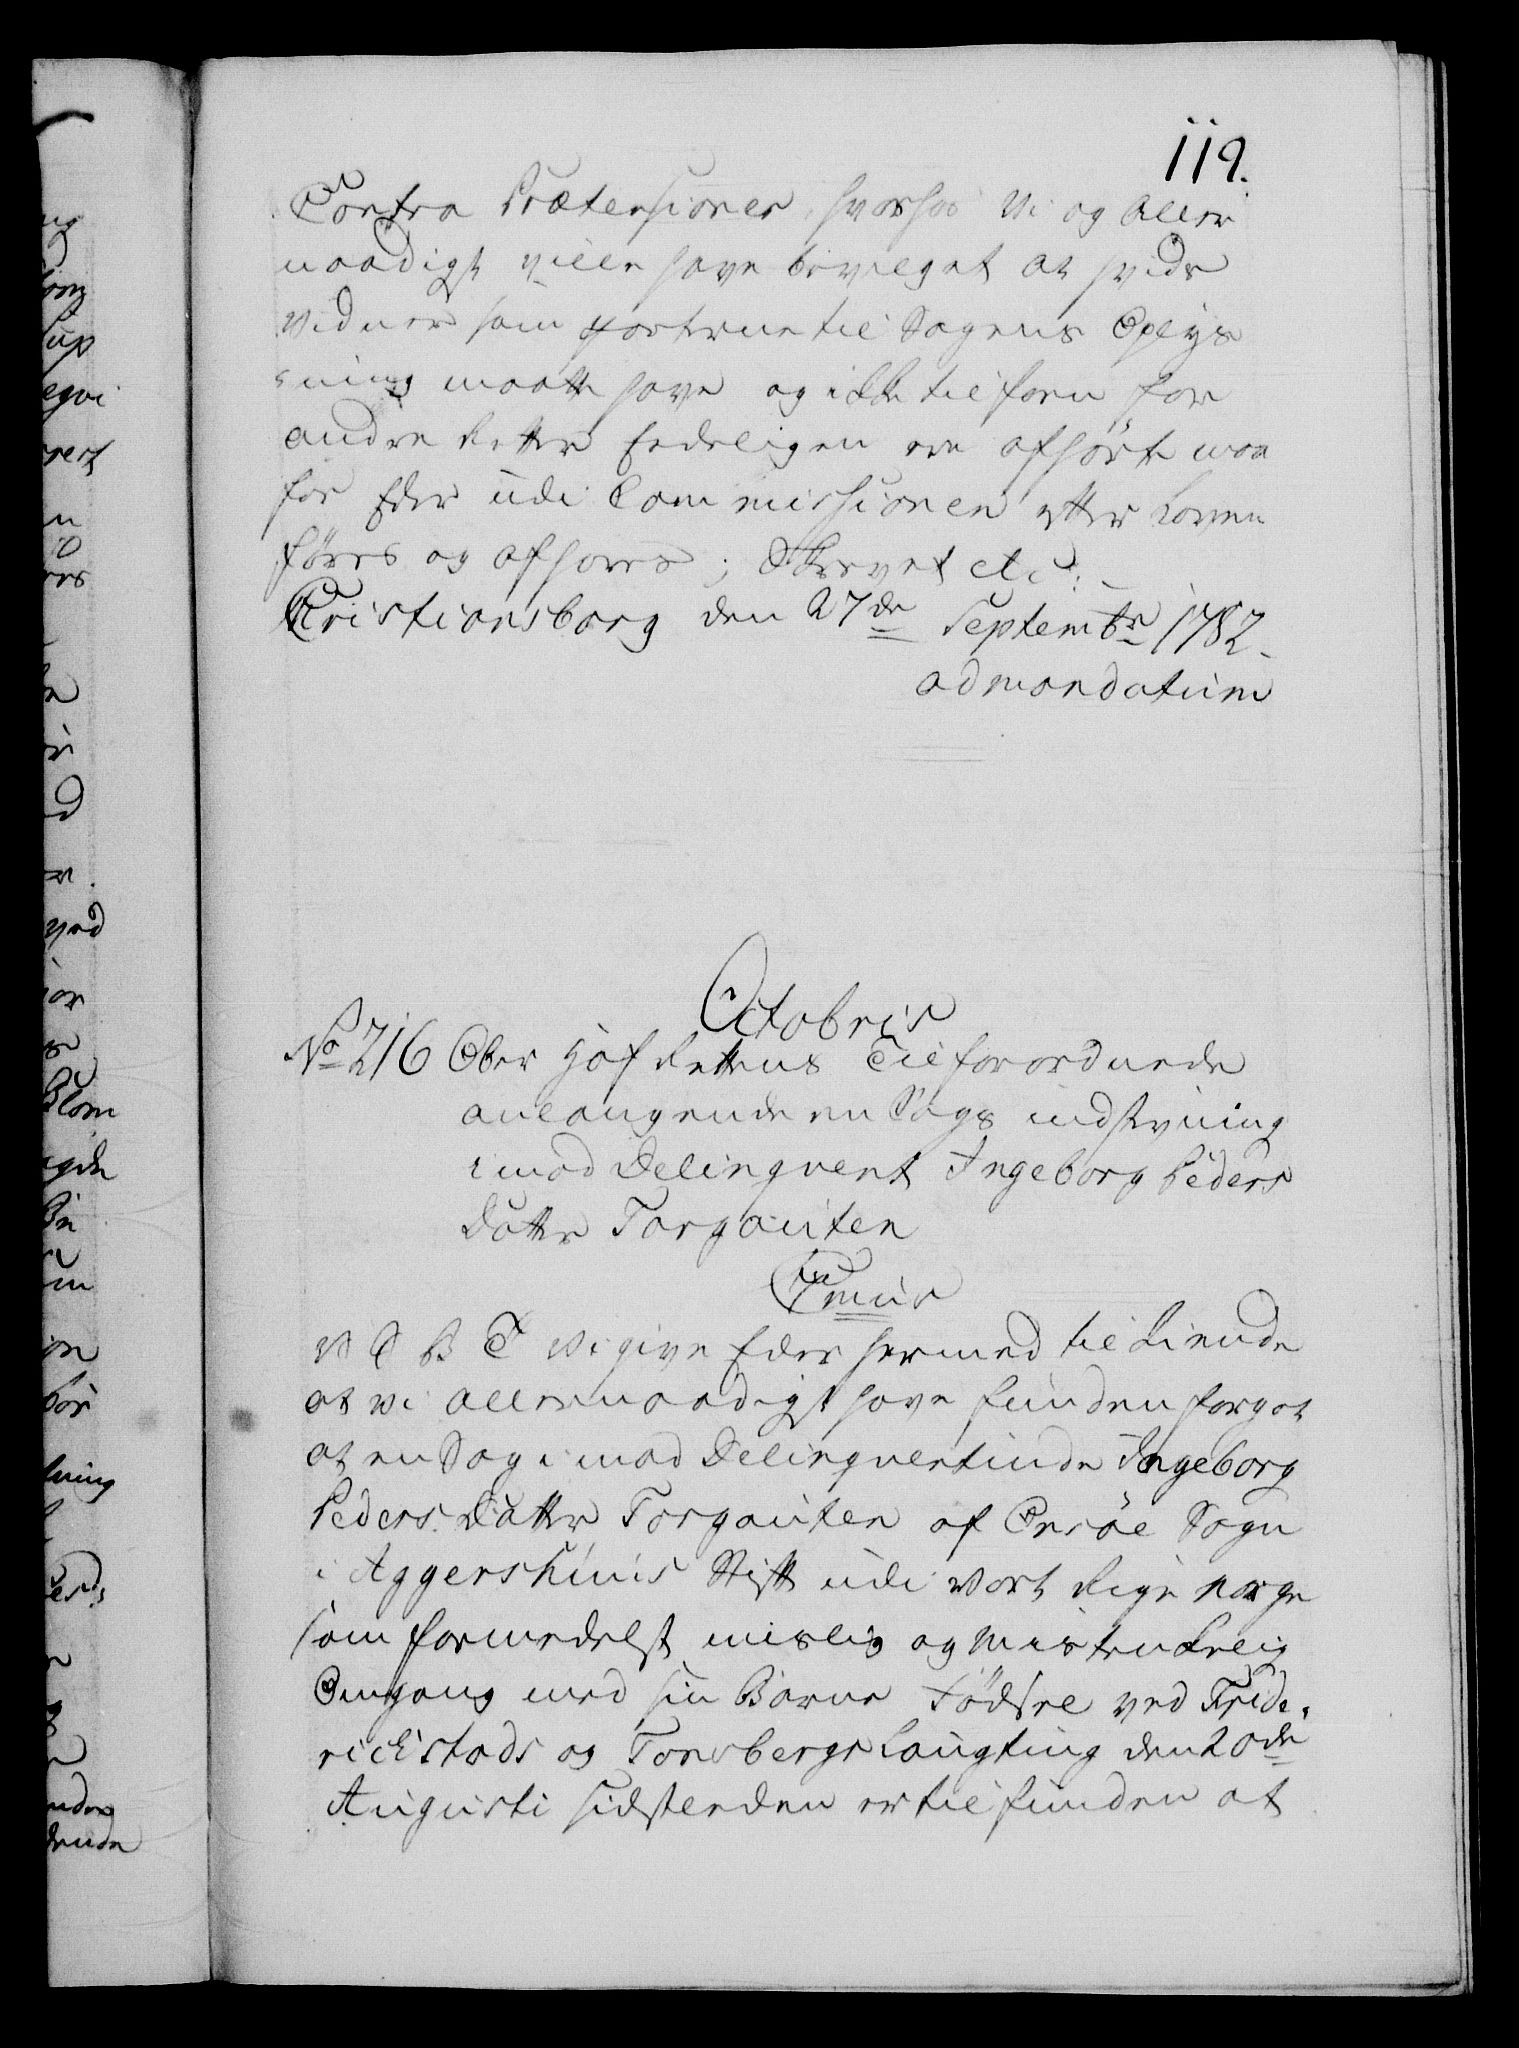 119.
Contra Prætensioner, hvorhos Vi og Aller
naadigst ville have bevilget at hvide
Vidner som fortrue til Sagens Oplys
ning maatte have og ikke tilforn for
andre Retter Eedeligen ere afhørte maa
for Eder udi Commissionen efter Loven
føres og afhøres; Skrevet etc:
Cristiansborg den 27de Septembr 1782.
ad mandatum
Octobris
No 216 Ober Hof Rettens Tilforordnede
anlangende en Sags indstevning
imod Delinqvent Ingeborg Peders
Datter Torgauten
7mus
V G B T Vi give Eder hermed tilkiende
at vi allernaadigst have funden forgot
at en Sag imod Delinqventinde Ingeborg
Peders Datter Torgauten af Onsøe Sogn
i Aggershuus Stift udi Vort Rige Norge
som formedelst mislig og Mistenkelig
Omgang med sin Barne Fødsel ved Fride,
richstads og Tonsbergs Laugting den 20de
Augusti sidstleden er tilfunden at